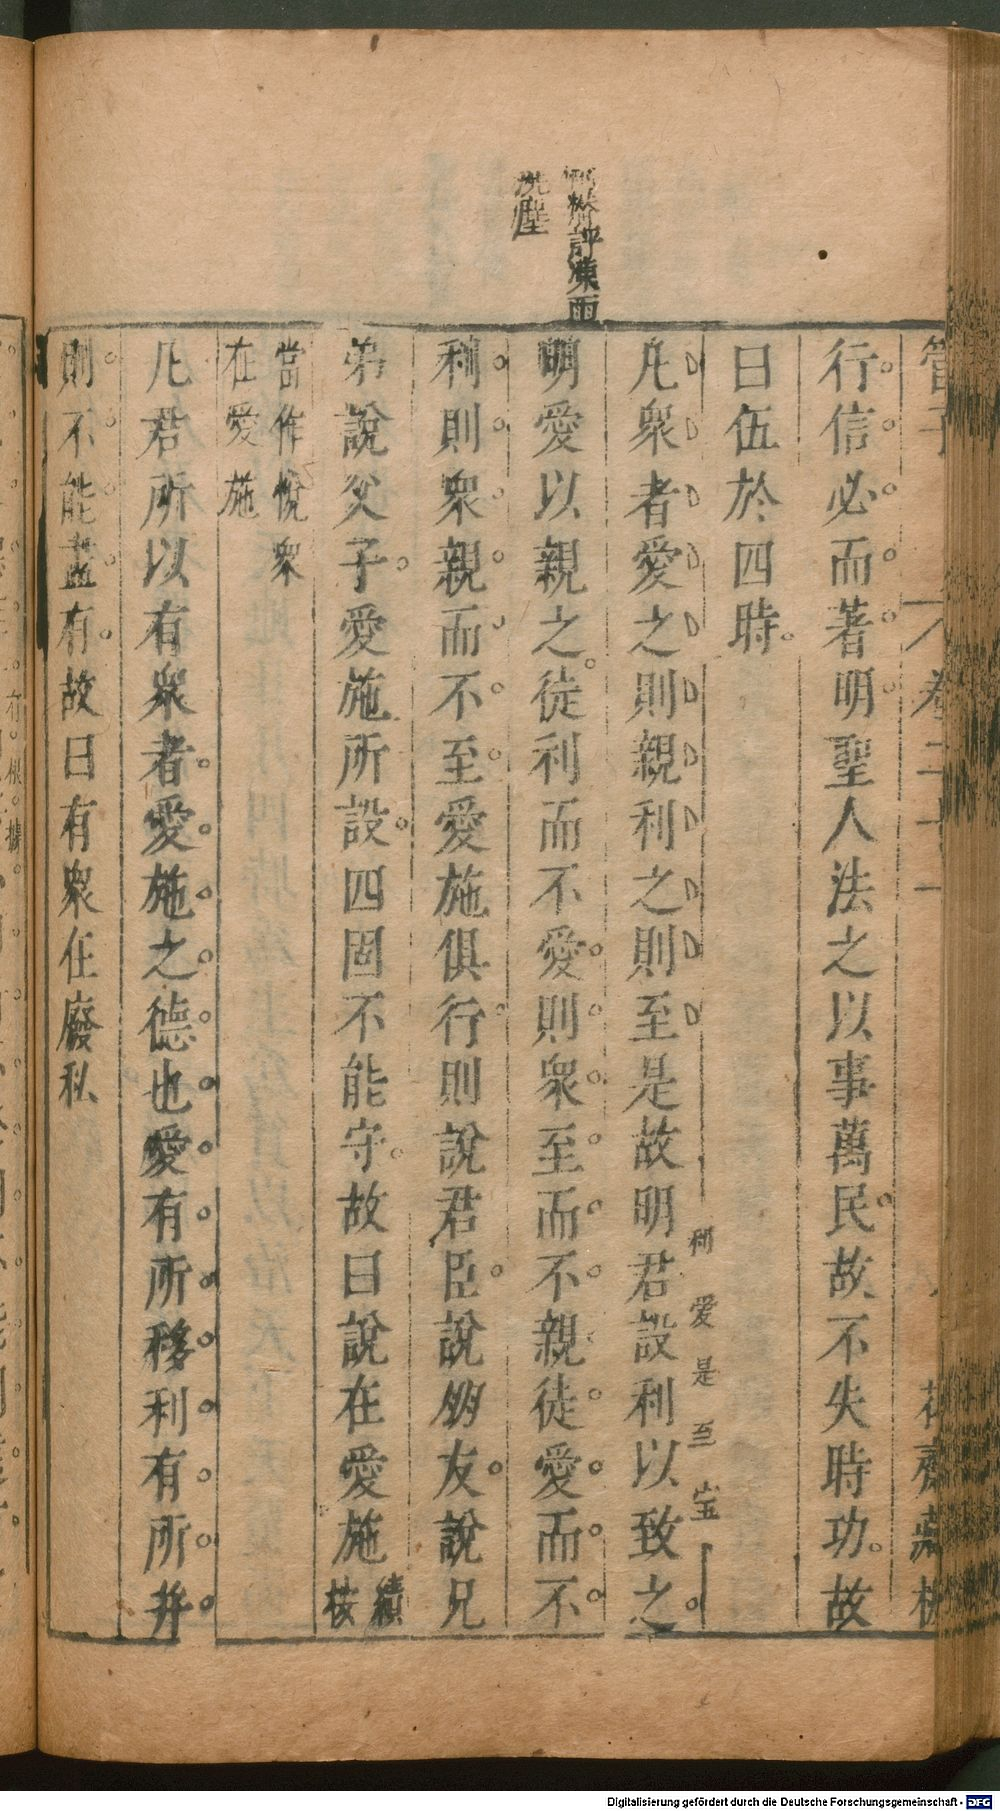 管子
卷二十一
花齋藏板
行信必而著明聖人法之以事萬民故不失時功故
曰伍於四時
凡衆者愛之則親利之則至是故明君設利以致之
利愛是至宝
明愛以親之徒利而不愛則衆至而不親徒愛而不
評凍雨
洗塵
利則衆親而不至愛施俱行則說君臣說朋友說兄
弟說父子愛施所設四固不能守故曰說在愛施績
按
當作悅衆
在愛施
凡君所以有衆者愛施之德也愛有所移利有所并
則不能盡有故曰有衆在廢私
Digitalisierung gefördert durch die Deutsche Forschungsgemeinschaft - DFG